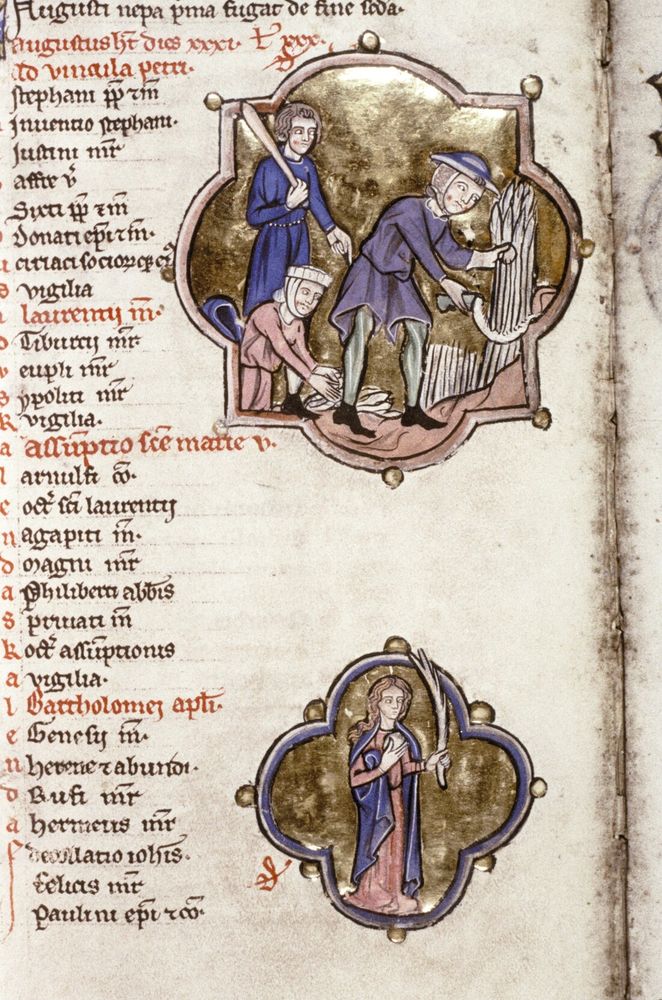 Augusti nepa p̄ma fugat de fine scda.
Augustus hr̄ dies xxxi. lº xxx.
Ad vincula petri.
Stephani pp̄ 7 m̄
Inventio stephani.
Justini mr̄
affre v̄
Sixti pp̄ 7 m̄
Donati ep̄i 7 m̄.
Ciriaci socior
vigilia
laurentii m̄.
Tiburcii mr̄
eupli mr̄
ypoliti mr̄
vigilia.
assūptio scē marie v.
arnulfi cō.
oct̄ sc̄i laurentii
agapiti m̄.
magni mr̄
Philiberti abb̄is
privati m̄
oct̄ assūptionis
vigilia.
Bartholomei apl̄i.
Genesii m̄.
Herenei 7 abundi.
Rufi mr̄
hermetis mr̄
decollatio iohīs.
felicis mr̄
Paulini ep̄i 7 cō.